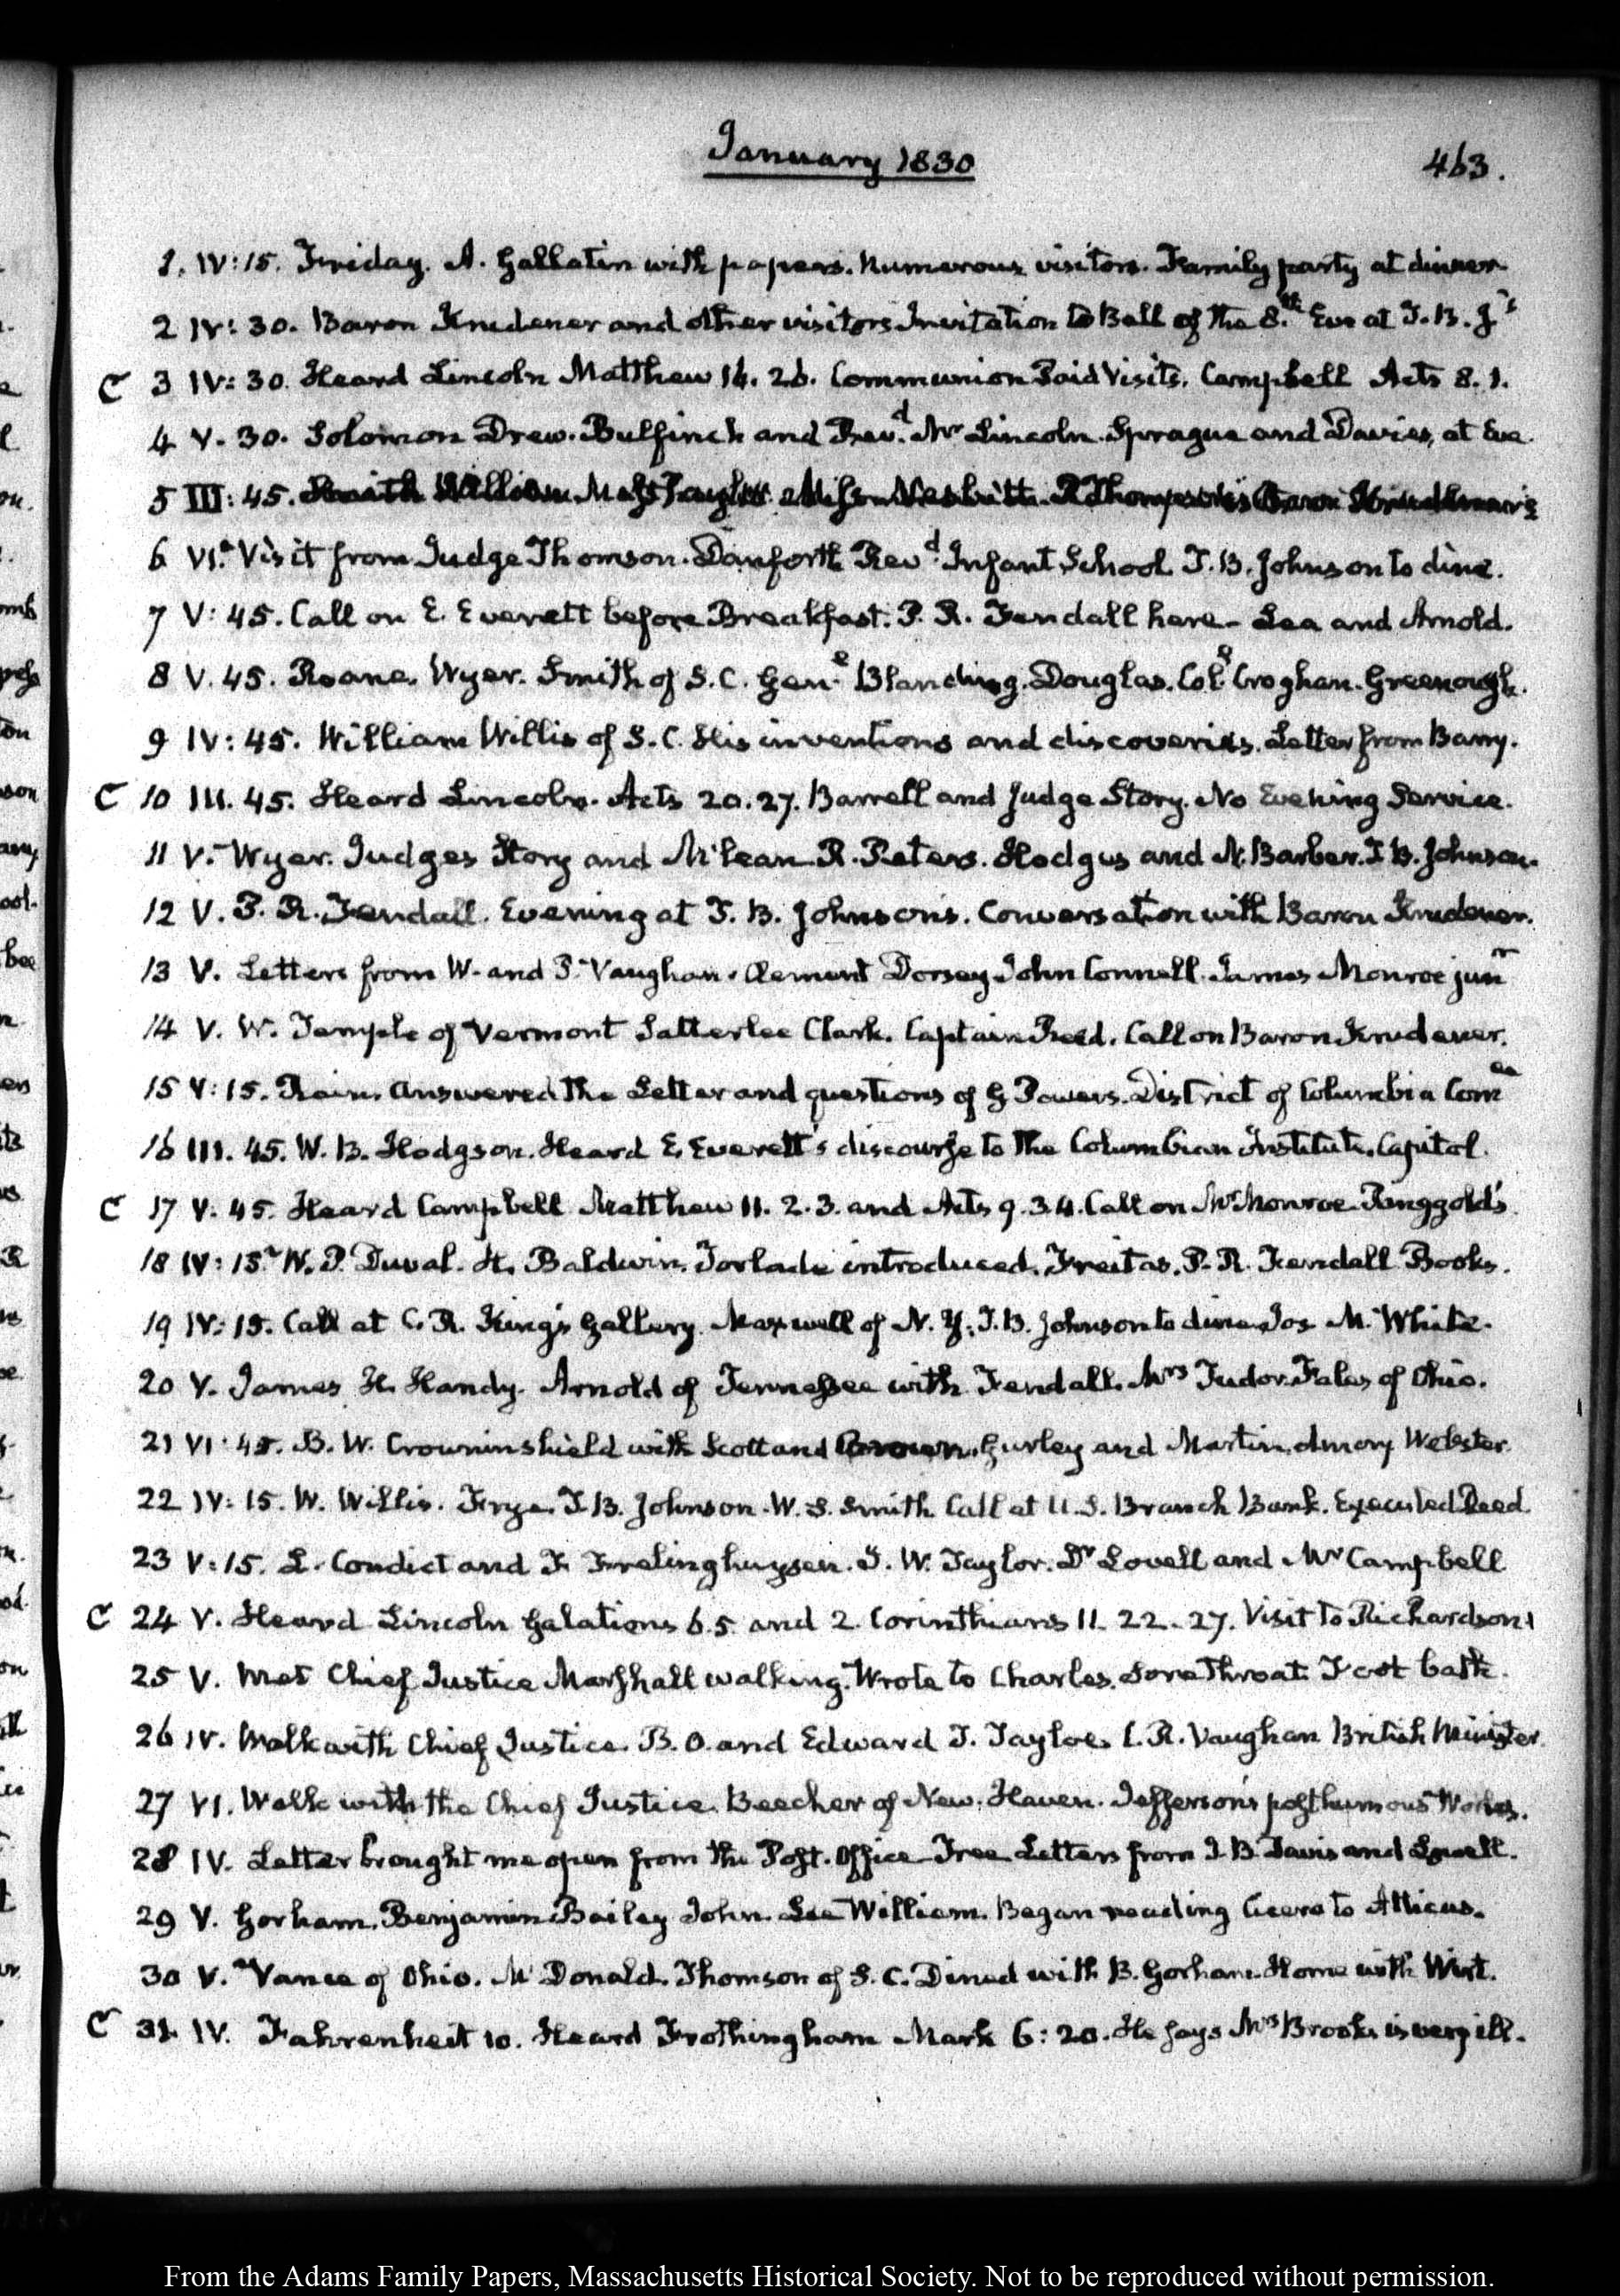 January 1830
463.
1. IV:15. Friday. A. Gallatin with papers. Numerous visitors. Family party at dinner
2 IV:30. Baron Krudener and other visitors Invitation to Ball of the 8.th Eve at T. B. J's
C 3 IV:30. Heard Lincoln Matthew 14. 26. Communion Paid Visits. Campbell Acts 8. 1.
4 V.30. Solomon Drew. Bulfinch and Revd. Mr Lincoln. Sprague and Davies, at Eve.
5 III:45. Smith William Thompson's Baron Krudener's
6 VI. Visit from Judge Thomson. Danforth Revd. Infant School T. B. Johnson to dine.
7 V:45. Call on E. Everett before Breakfast. P. R. Fendall here - Lea and Arnold.
8 V.45. Roane. Wyer. Smith of S.C. Genl. Blanding. Douglas. Coll. Croghan. Greenough.
9 IV:45. William Willis of S.C. His inventions and discoveries. Letter from Barry.
C 10 III.45. Heard Lincoln. Acts 20. 27. Barrell and Judge Story. No Evening Service.
11 V. Wyer. Judges Story and McLean R. Peters. Hodges and N. Barber. T. B. Johnson.
12 V. P. R. Fendall. Evening at T. B. Johnson's. Conversation with Baron Krudener.
13 V. Letters from W. and P. Vaughan. Clement Dorsey John Connell. James Monroe junr
14 V. W. Temple of Vermont Satterlee Clark. Captain Read. Call on Baron Krudener.
15 V:15. Rain. Answered the Letter and questions of G Powers. District of Columbia Comee
16 III.45. W. B. Hodgson. Heard E. Everett's discourse to the Columbian Institute. Capitol.
C 17 V.45. Heard Campbell Matthew 11. 2. 3. and Acts 9. 34. Call on Mr Monroe Ringgold's
18 IV:15. W. P. Duval. H. Baldwin. Torlade introduced. Freitas. P. R. Fendall Books.
19 IV:15. Call at C. R. King's Gallery. Maxwell of N. Y. T. B. Johnson to dine Jos M. White.
20 V. James H. Handy. Arnold of Tennessee with Fendall. Mrs Tudor. Fales of Ohio.
21 VI:45. B. W. Crowninshield with Scott and Brown. Gurley and Martin. Amory Webster.
22 IV:15. W. Willis. Frye. T. B. Johnson. W. S. Smith Call at U.S. Branch Bank. Executed Deed.
23 V:15. L. Condict and F. Frelinghuysen. J. W. Taylor. Dr Lovell and Mr Campbell
C 24 V. Heard Lincoln Galatians 6. 5. and 2. Corinthians 11. 22-27. Visit to Richardson
25 V. Met Chief Justice Marshall walking. Wrote to Charles. Sore Throat. Foot bath.
26 IV. Walk with Chief Justice. B. O. and Edward T. Tayloe. C. R. Vaughan British Minister
27 VI. Walk with the Chief Justice. Beecher of New-Haven. Jefferson's posthumous Works.
28 IV. Letter brought me open from the Post-Office Free Letters from J B Davis and Lowell.
29 V. Gorham. Benjamin Bailey John Lee William. Began reading Cicero to Atticus.
30 V. Vance of Ohio. McDonald. Thomson of S.C. Dined with B. Gorham. Home with Wirt.
C 31 IV. Fahrenheit 10. Heard Frothingham Mark 6:20. He says Mrs Brooks is very ill.
From the Adams Family Papers, Massachusetts Historical Society. Not to be reproduced without permission.